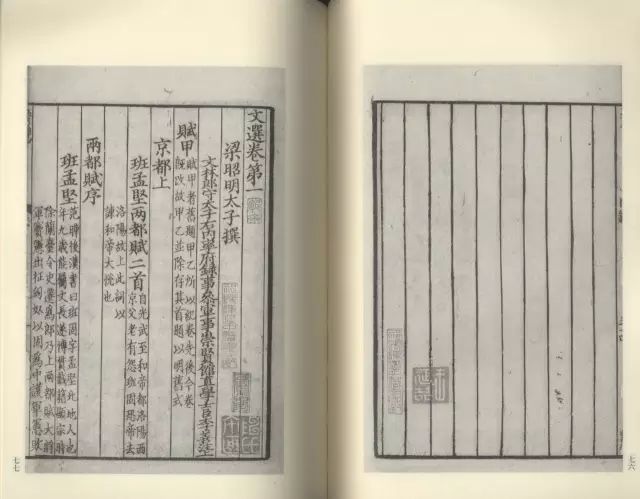 七六
文選卷第一
梁昭明太子撰
文林郎守太子右內率府錄事參軍事崇賢館直學士臣李善注上
賦甲
賦甲者舊題甲乙所以紀卷先後今卷
既改故甲乙並除存其首題以明舊式
京都上
班孟堅兩都賦二首
自光武至和帝都洛陽西
京父老有怨班固恐帝去
洛陽故上此詞以
諫和帝大悅也
兩都賦序
班孟堅
范曄後漢書曰班固字孟堅北地人也
年九歲能屬文長遂博貫載籍顯宗時
除蘭臺令史遷爲郎乃上兩都賦大將
軍竇憲出征匈奴以固爲中護軍憲敗
七七